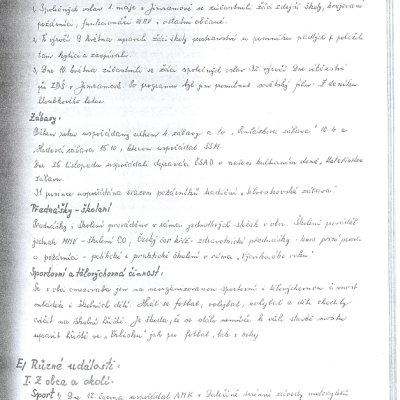 1. Společných oslav 1. máje v Jimramově se zúčastnili žáci zdejší školy, svazarm
požárníci, funkcionáři MNV i ostatní občané.
2. K výročí 9. května upravili žáci školy prostranství u pomníku padlých, položili
tam kytici a zazpívali.
3. Dne 10. května zúčastnili se žáci společných oslav 32. výročí Dne vítězství
ZDŠ v Jimramově. Po programu byl jim promítnut sovětský film: Z deníku
letce.
Zábavy.
Během roku uspořádány celkem 4 zábavy a to „ zábava" 10. 4. a
Hodová zábava 15. 10., kterou uspořádal SSM.
Dne 26. listopadu uspořádali dopraváci ČSAD v našem kulturním domě „Kateřinskou
zábavu.
31. prosince uspořádána svazem požárníků tradiční „Silvestrovská zábava."
Přednášky - školení
Přednášky, školení prováděno v rámci jednotlivých složek v obci. Školení prováděl
jednak MNV - školení CO, Český čer. kříž - zdravotnické přednášky - kurs první pomoci
a požárníci - politické i praktické školení v rámci „Výcvikového roku."
Sportovní a tělovýchovná činnost:
Se v obci omezovala jen na neorganizovanou sportovní i tělovýchovnou činnost
mládeže i školních dětí. Hrál se fotbal, volejbal, nohejbal a děti chodily
cvičit na školní hřiště. Je škoda, že se stále nemůže k vůli stavbě mostu
upravit hřiště ve jak pro fotbal, tak i
E/ Různé události.
I. Z obce a okolí.
Sport 1) Dne 12. června uspořádal AMK v Dalečíně závody motocyklů